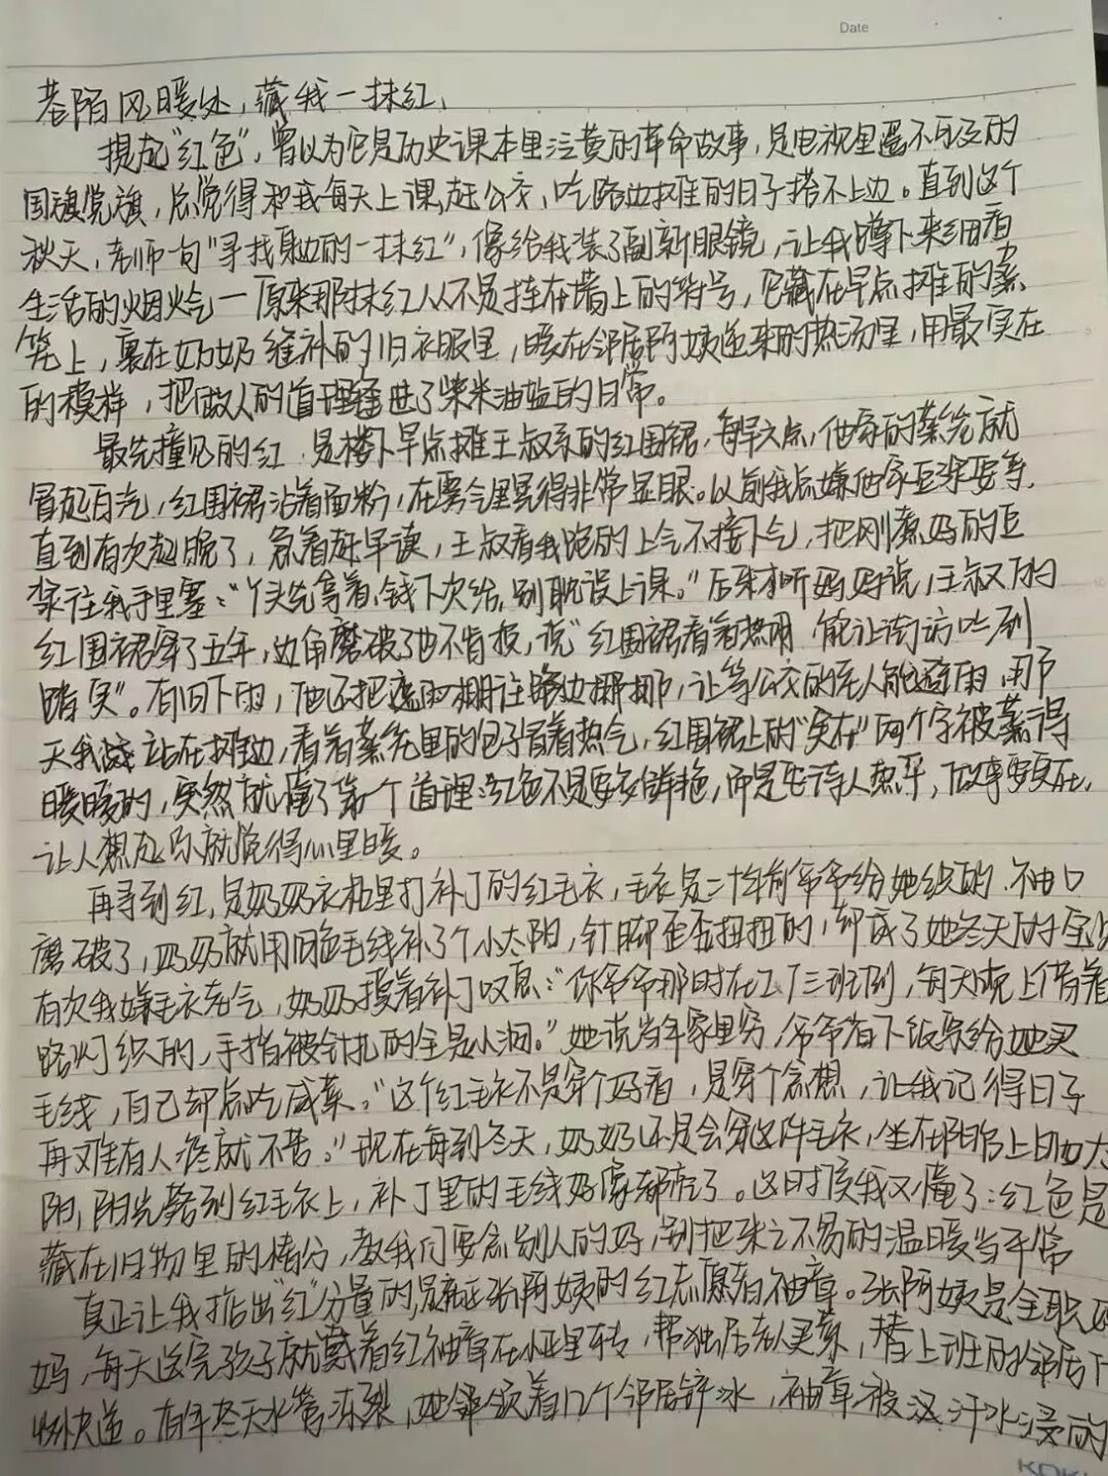 Date
巷陌风暖处，藏我一抹红、
提起"红色"，曾以为它是历史课本里泛黄的革命故事，是电视里遥不可及的
国旗党旗，总觉得和我每天上课，赶公交，吃路边摊的日子搭不上边。直到这个
秋天，老师一句"寻找身边的一抹红"，像给我装了副新眼镜，让我蹲下来细看
生活的烟火气—原来那抹红从不是挂在墙上的符号，它藏在早点摊的蒸
笼上，裹在奶奶缝补的旧衣服里，暖在邻居阿姨递来的热汤里，用最实在
的模样，把做人的道理缝进了柴米油盐的日常。
最先撞见的红，是楼下早点摊王叔系的红围裙，每早六点，他家的蒸笼就
冒起白汽，红围裙沾着面粉，在雾气里显得非常显眼。以前我总嫌他家豆浆要等，
直到有次起晚了，急着赶早读，王叔看我跑的上气不接下气，把刚煮好的豆
浆往我手里塞："丫头先拿着，钱下次给，别耽误上课。"后来才听妈妈说，王叔的
红围裙穿了五年，边角磨破了也不肯换，说"红围裙看着热闹，能让街访吃到
踏实"。有日下雨，他还把遮雨棚往路边挪挪，让等公交的老人能避雨，那
天我站在摊边，看着蒸笼里的包子冒着热气，红围裙上的"实在"两个字被蒸得
暖暖的，突然就懂了第一个道理：红色不是要多鲜艳，而是要待人热乎，做事要实在，
让人想起你就觉得心里暖。
再寻到红，是奶奶衣柜里打补丁的红毛衣，毛衣是二十年前爷爷给她织的，袖口
磨破了，奶奶就用旧色毛线补了个小太阳，针脚歪歪扭扭的，却成了她冬天的宝
有次我嫌毛衣老气，奶奶摸着补丁叹息："你爷爷那时在工厂三班倒，每天晚上借着
路灯织的，手指被针扎的全是小洞。"她说当年家里穷，爷爷省下饭票给她买
毛线，自己却总吃咸菜。"这个红毛衣不是穿个好看，是穿个念想，让我记得日子
再难有人疼就不苦。"现在每到冬天，奶奶还是会穿这件毛衣，坐在阳台上晒太
阳，阳光落到红毛衣上，补丁里的毛线好像都亮了。这时候我又懂了：红色是
藏在旧物里的情分，教我们要念别人的好，别把来之不易的温暖当平常
真正让我掂出"红"分量的，是社区张阿姨的红志愿者袖章。张阿姨是全职
妈，每天送完孩子就戴着红袖章在小区里转，帮独居老人买菜，替上班的邻居
收快递。有年冬天水管冻裂，她领着几个邻居铲冰，袖章被汗水浸的